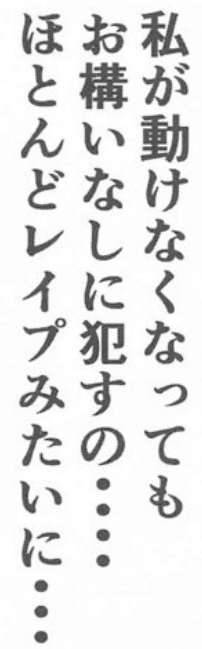 私が動けなくなっても
お構いなしに犯すの……
ほとんどレイプみたいに…